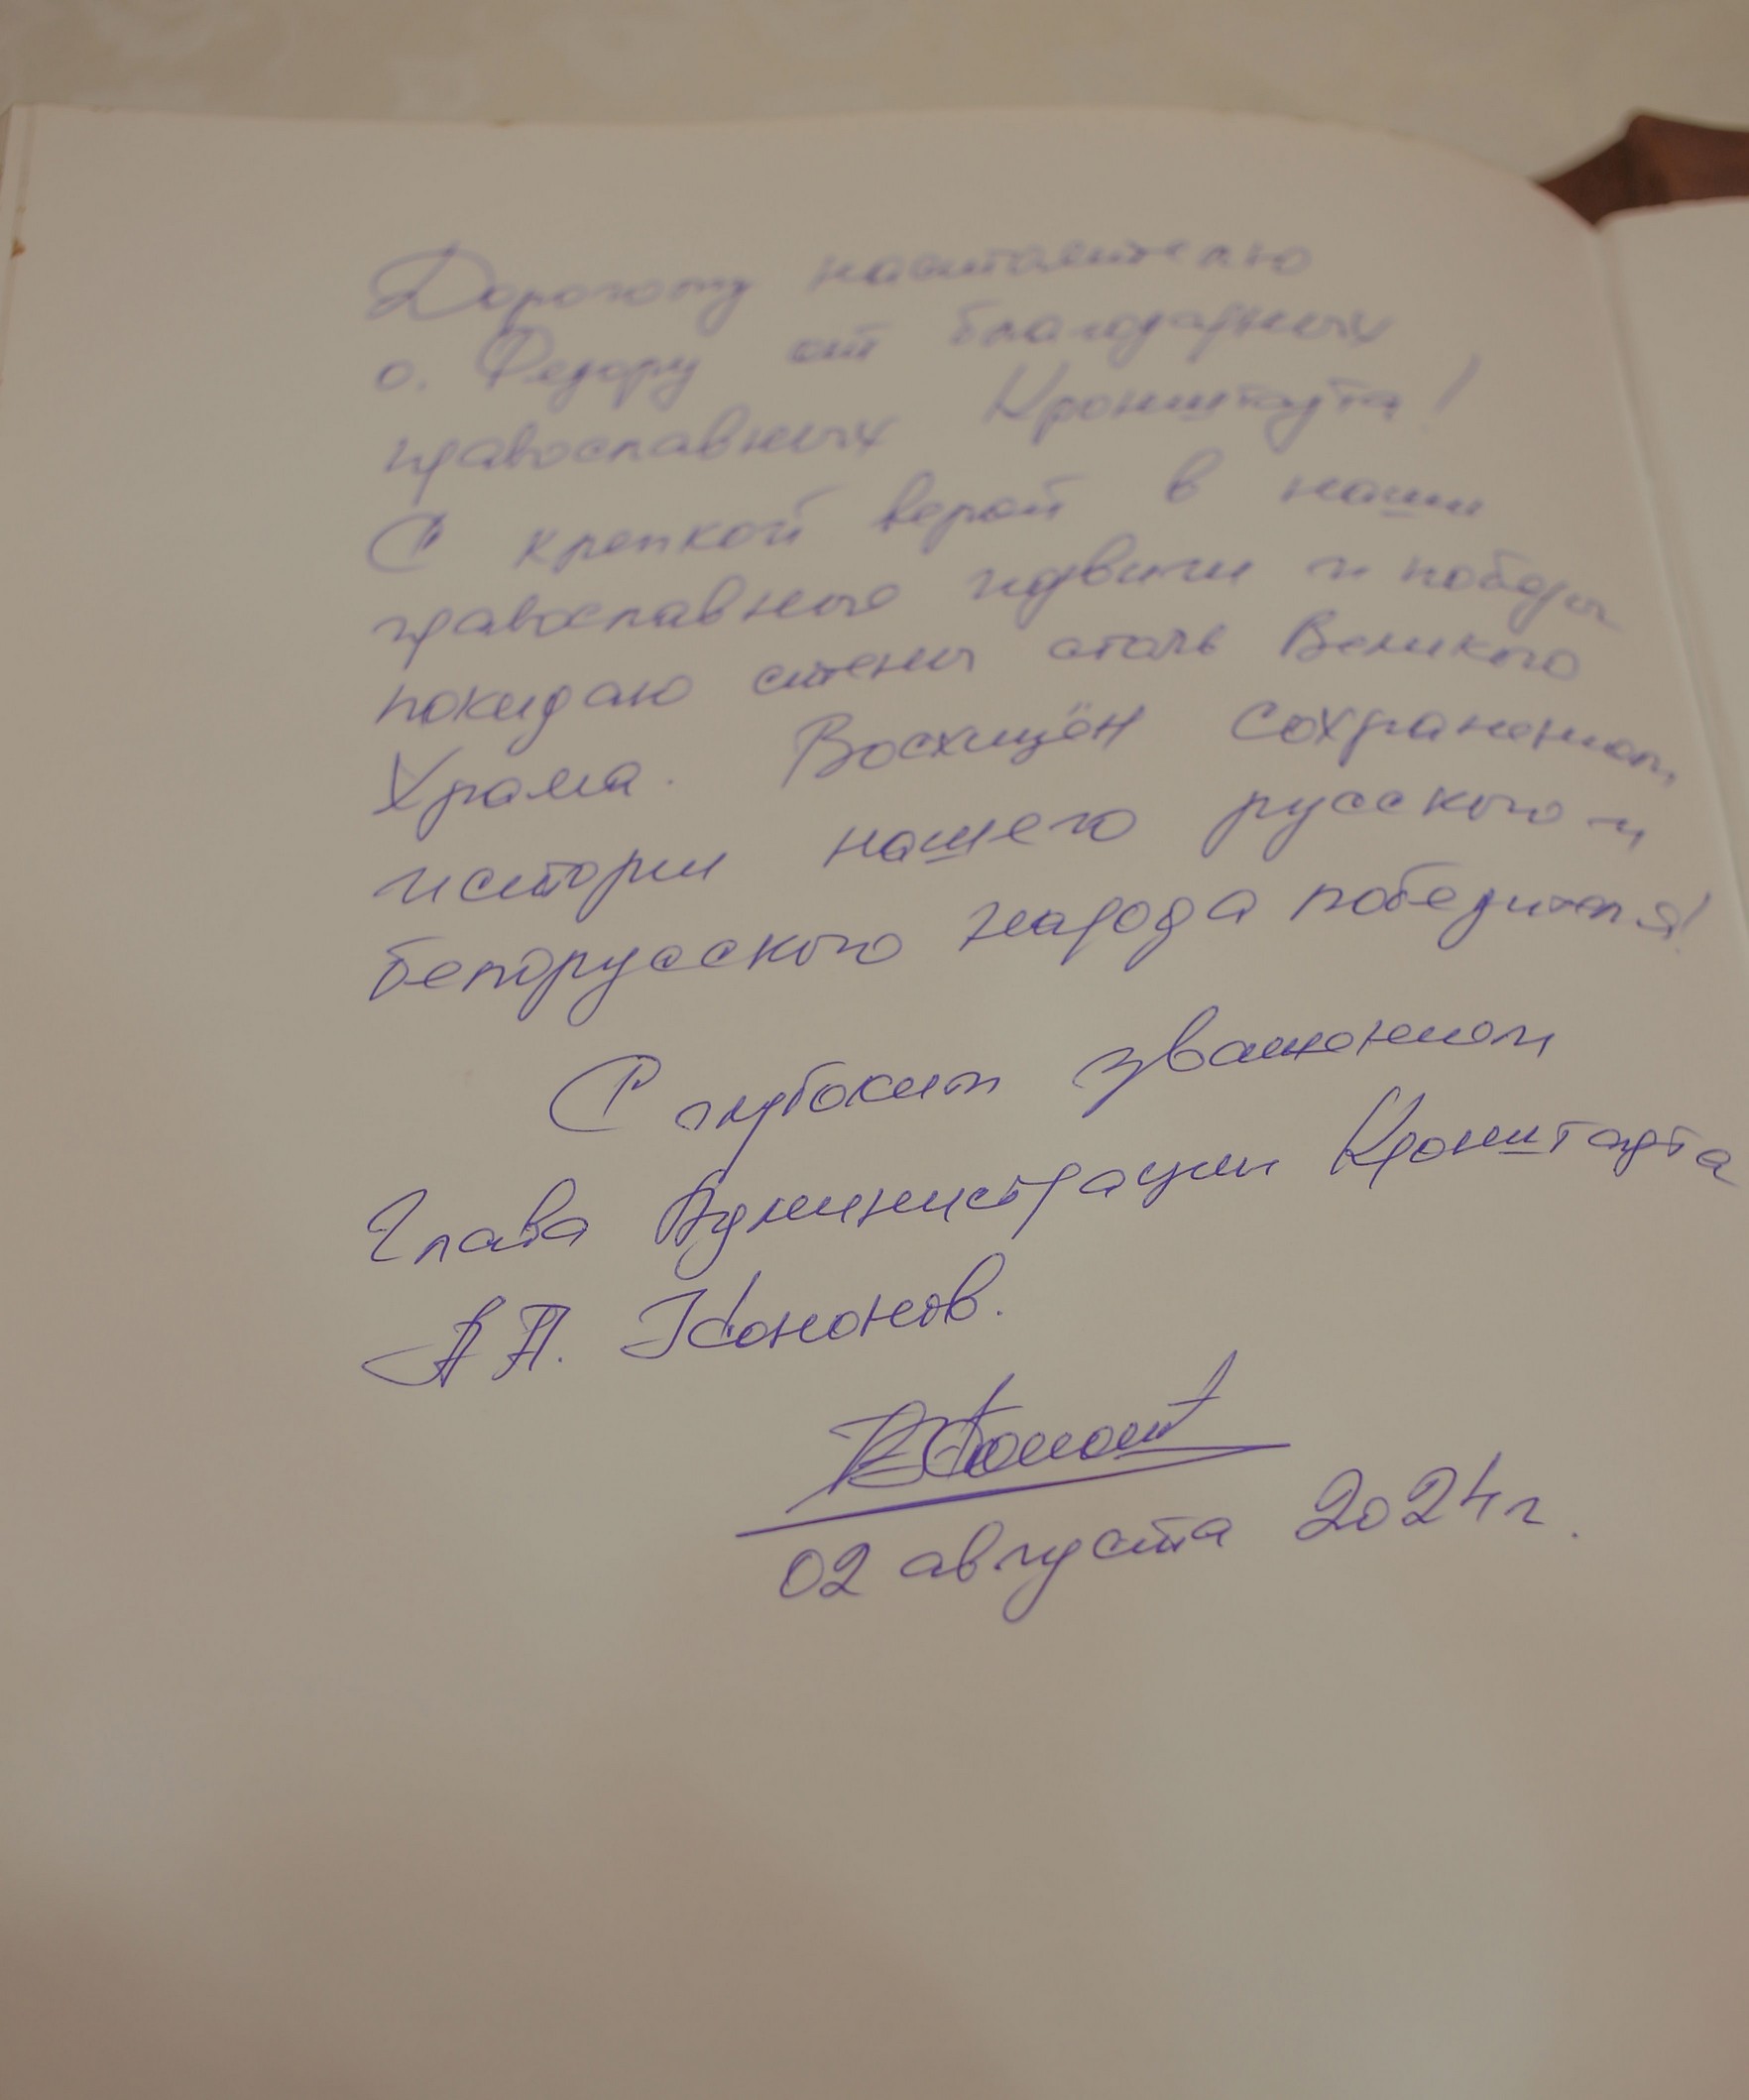 Дорогому настоятелю
о. Федору от благодарных
православных Кронштадта!
С крепкой верой в наши
православные подвиги и победы
покидаю стены столь Великого
Храма. Восхищён сохранением,
истории нашего русского и
белорусского народа победителя!
С глубоким уважением
Глава Администрации Кронштадта
А.П. Кононов.
02 августа 2024г.